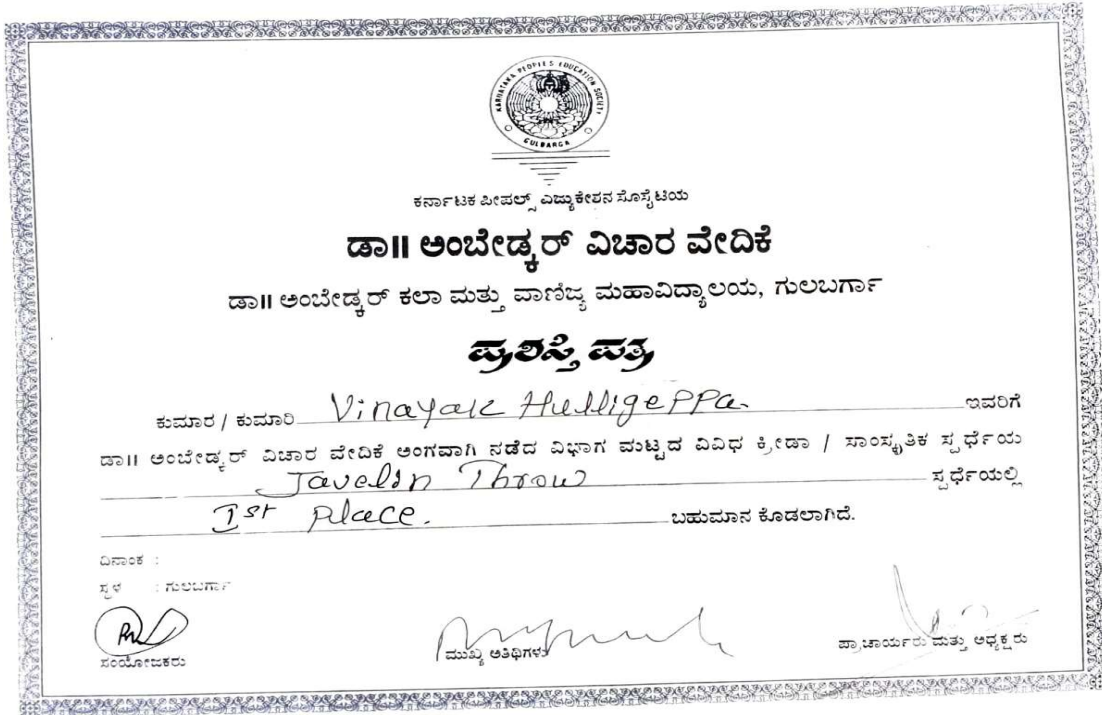 KARNATAKA PEOPLE'S EDUCATION SOCIETY
GULBARGA
ಕರ್ನಾಟಕ ಪೀಪಲ್ಸ್ ಎಜ್ಯುಕೇಶನ ಸೊಸೈಟಿಯ
ಡಾ॥ ಅಂಬೇಡ್ಕರ್ ವಿಚಾರ ವೇದಿಕೆ
ಡಾ॥ ಅಂಬೇಡ್ಕರ್ ಕಲಾ ಮತ್ತು ವಾಣಿಜ್ಯ ಮಹಾವಿದ್ಯಾಲಯ, ಗುಲಬರ್ಗಾ
ಪ್ರಶಸ್ತಿ ಪತ್ರ
ಕುಮಾರ / ಕುಮಾರಿ Vinayak Hulligeppa ಇವರಿಗೆ
ಡಾ॥ ಅಂಬೇಡ್ಕರ್ ವಿಚಾರ ವೇದಿಕೆ ಅಂಗವಾಗಿ ನಡೆದ ವಿಭಾಗ ಮಟ್ಟದ ವಿವಿಧ ಕ್ರೀಡಾ / ಸಾಂಸ್ಕೃತಿಕ ಸ್ಪರ್ಧೆಯ
Javelin Throw ಸ್ಪರ್ಧೆಯಲ್ಲಿ
Ist Place. ಬಹುಮಾನ ಕೊಡಲಾಗಿದೆ.
ದಿನಾಂಕ :
ಸ್ಥಳ : ಗುಲಬರ್ಗಾ
ಸಂಯೋಜಕರು ಮುಖ್ಯ ಅತಿಥಿಗಳು ಪ್ರಾಚಾರ್ಯರು ಮತ್ತು ಅಧ್ಯಕ್ಷರು